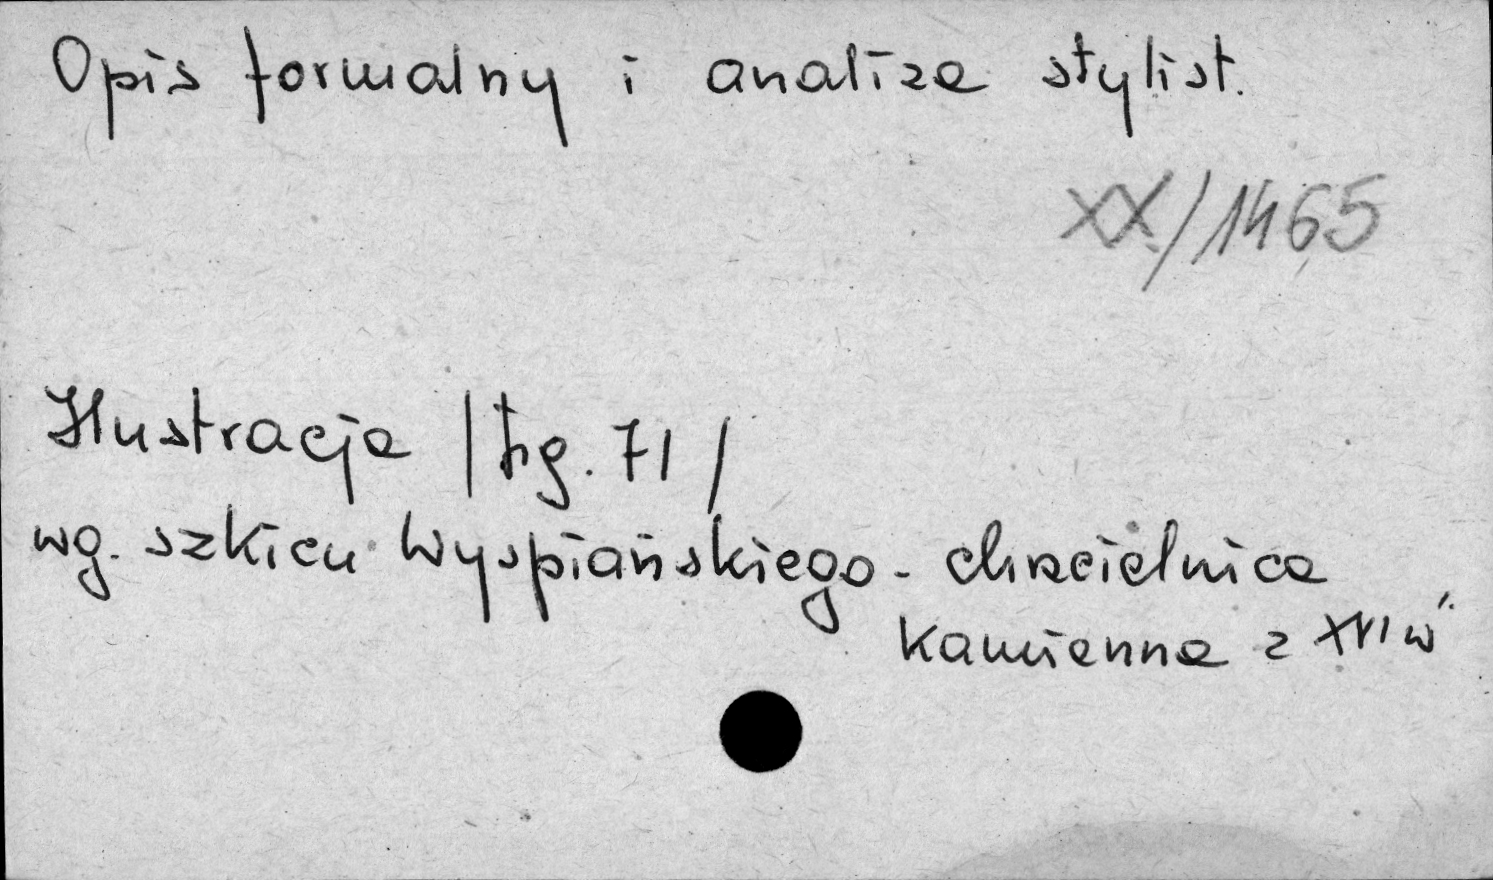 Opis formalny i analiza stylist.
XX/1465
Ilustracja /fig. 71/
wg. szkicu Wyspiańskiego - chrzcielnica
kamienna z XVI w.